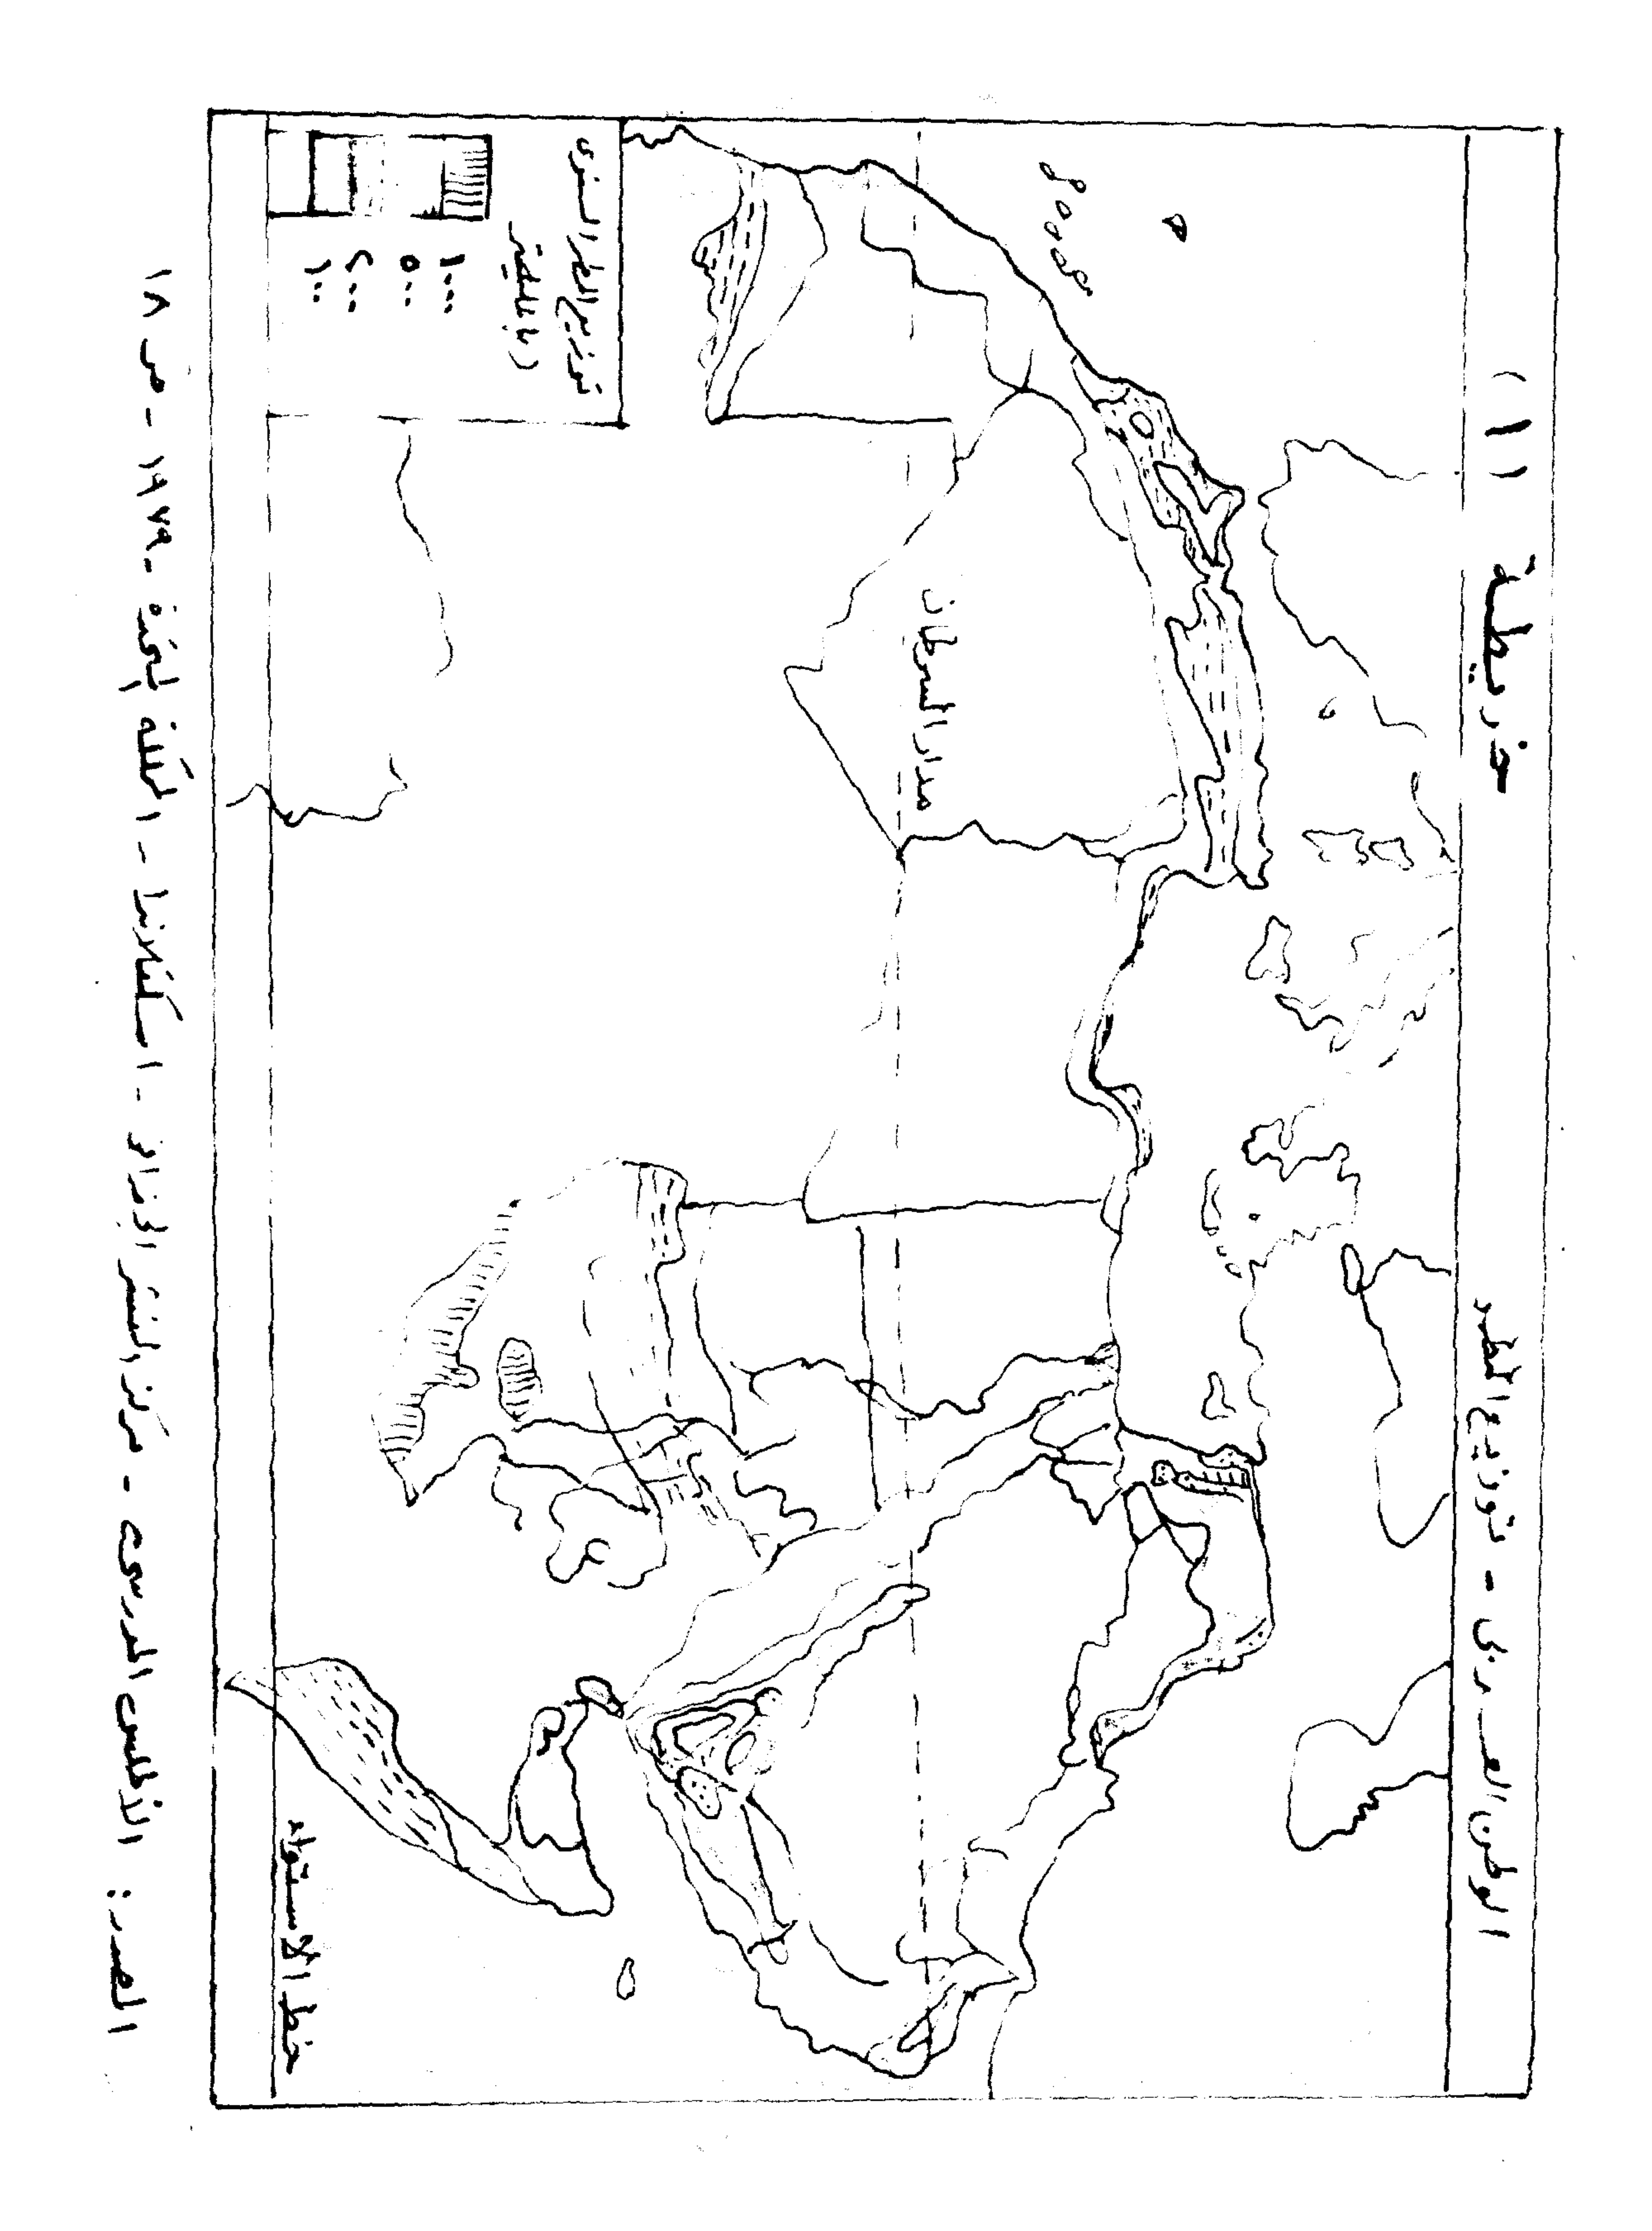 خريطة (١)
الوطن العربى - توزيع المطر
مدار السرطان
توزيع المطر السنوى
(بالملليمتر)
١٠٠٠
٥٠٠
٢٠٠
١٠٠
خط الاستواء
المصدر: الأطلس المدرسى - مركز النشر الجغرافى - اسكتلاندا - المملكة المتحدة - ١٩٧٩ - ص ١٨